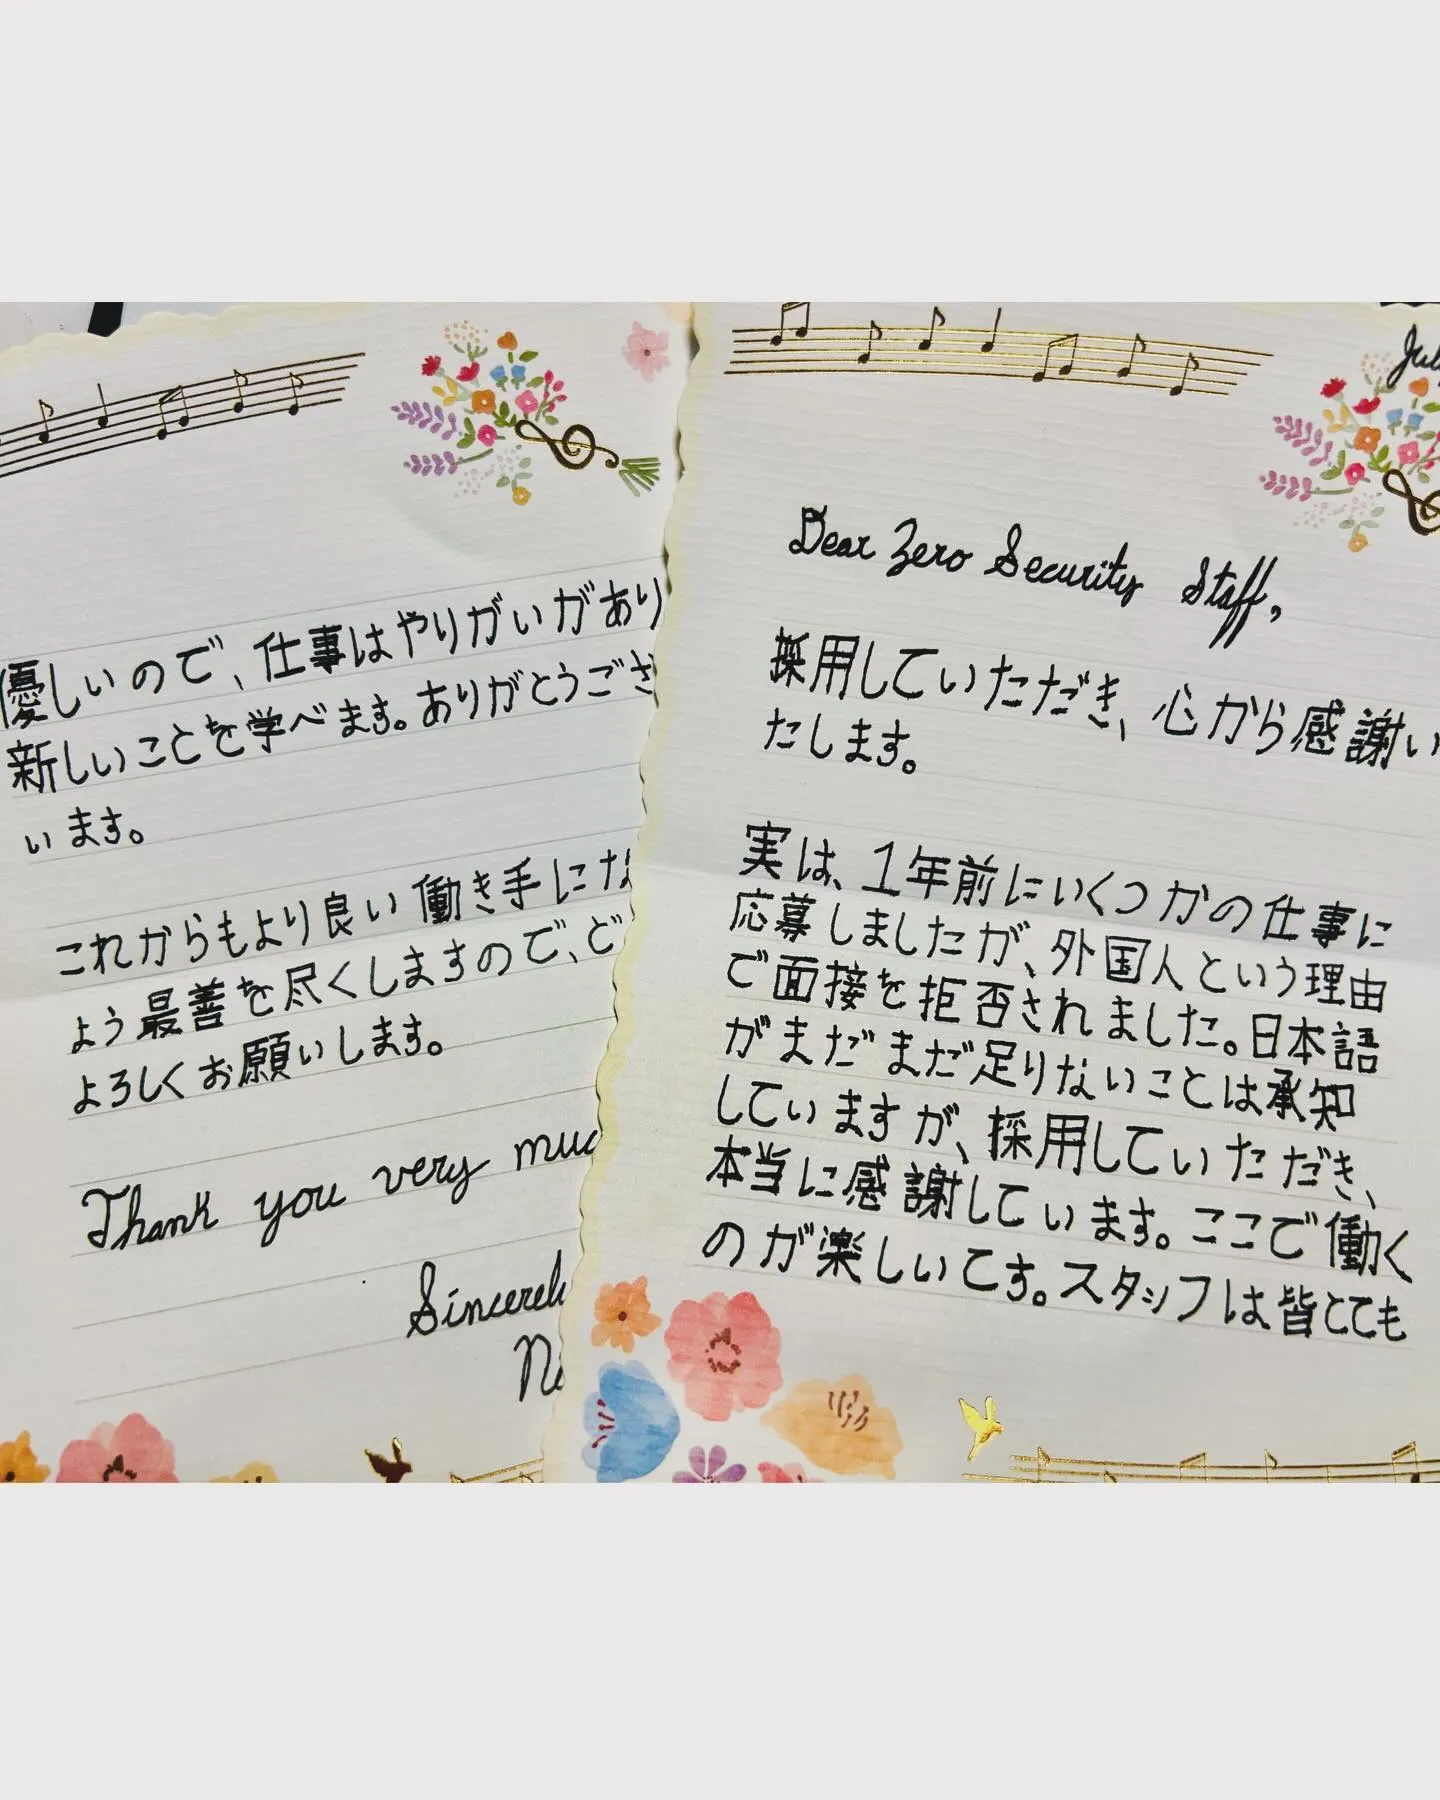 Dear Zero Security Staff,
採用していただき、心から感謝い
たします。
実は、1年前にいくつかの仕事に
応募しましたが、外国人という理由
で面接を拒否されました。日本語
がまだまだ足りないことは承知
していますが、採用していただき、
本当に感謝しています。ここで働く
のが楽しいてす。スタッフは皆とても
優しいので、仕事はやりがいがあり
新しいことを学べます。ありがとうござ
います。
これからもより良い働き手にな
よう最善を尽くしますので、ど
よろしくお願いします。
Thank you very